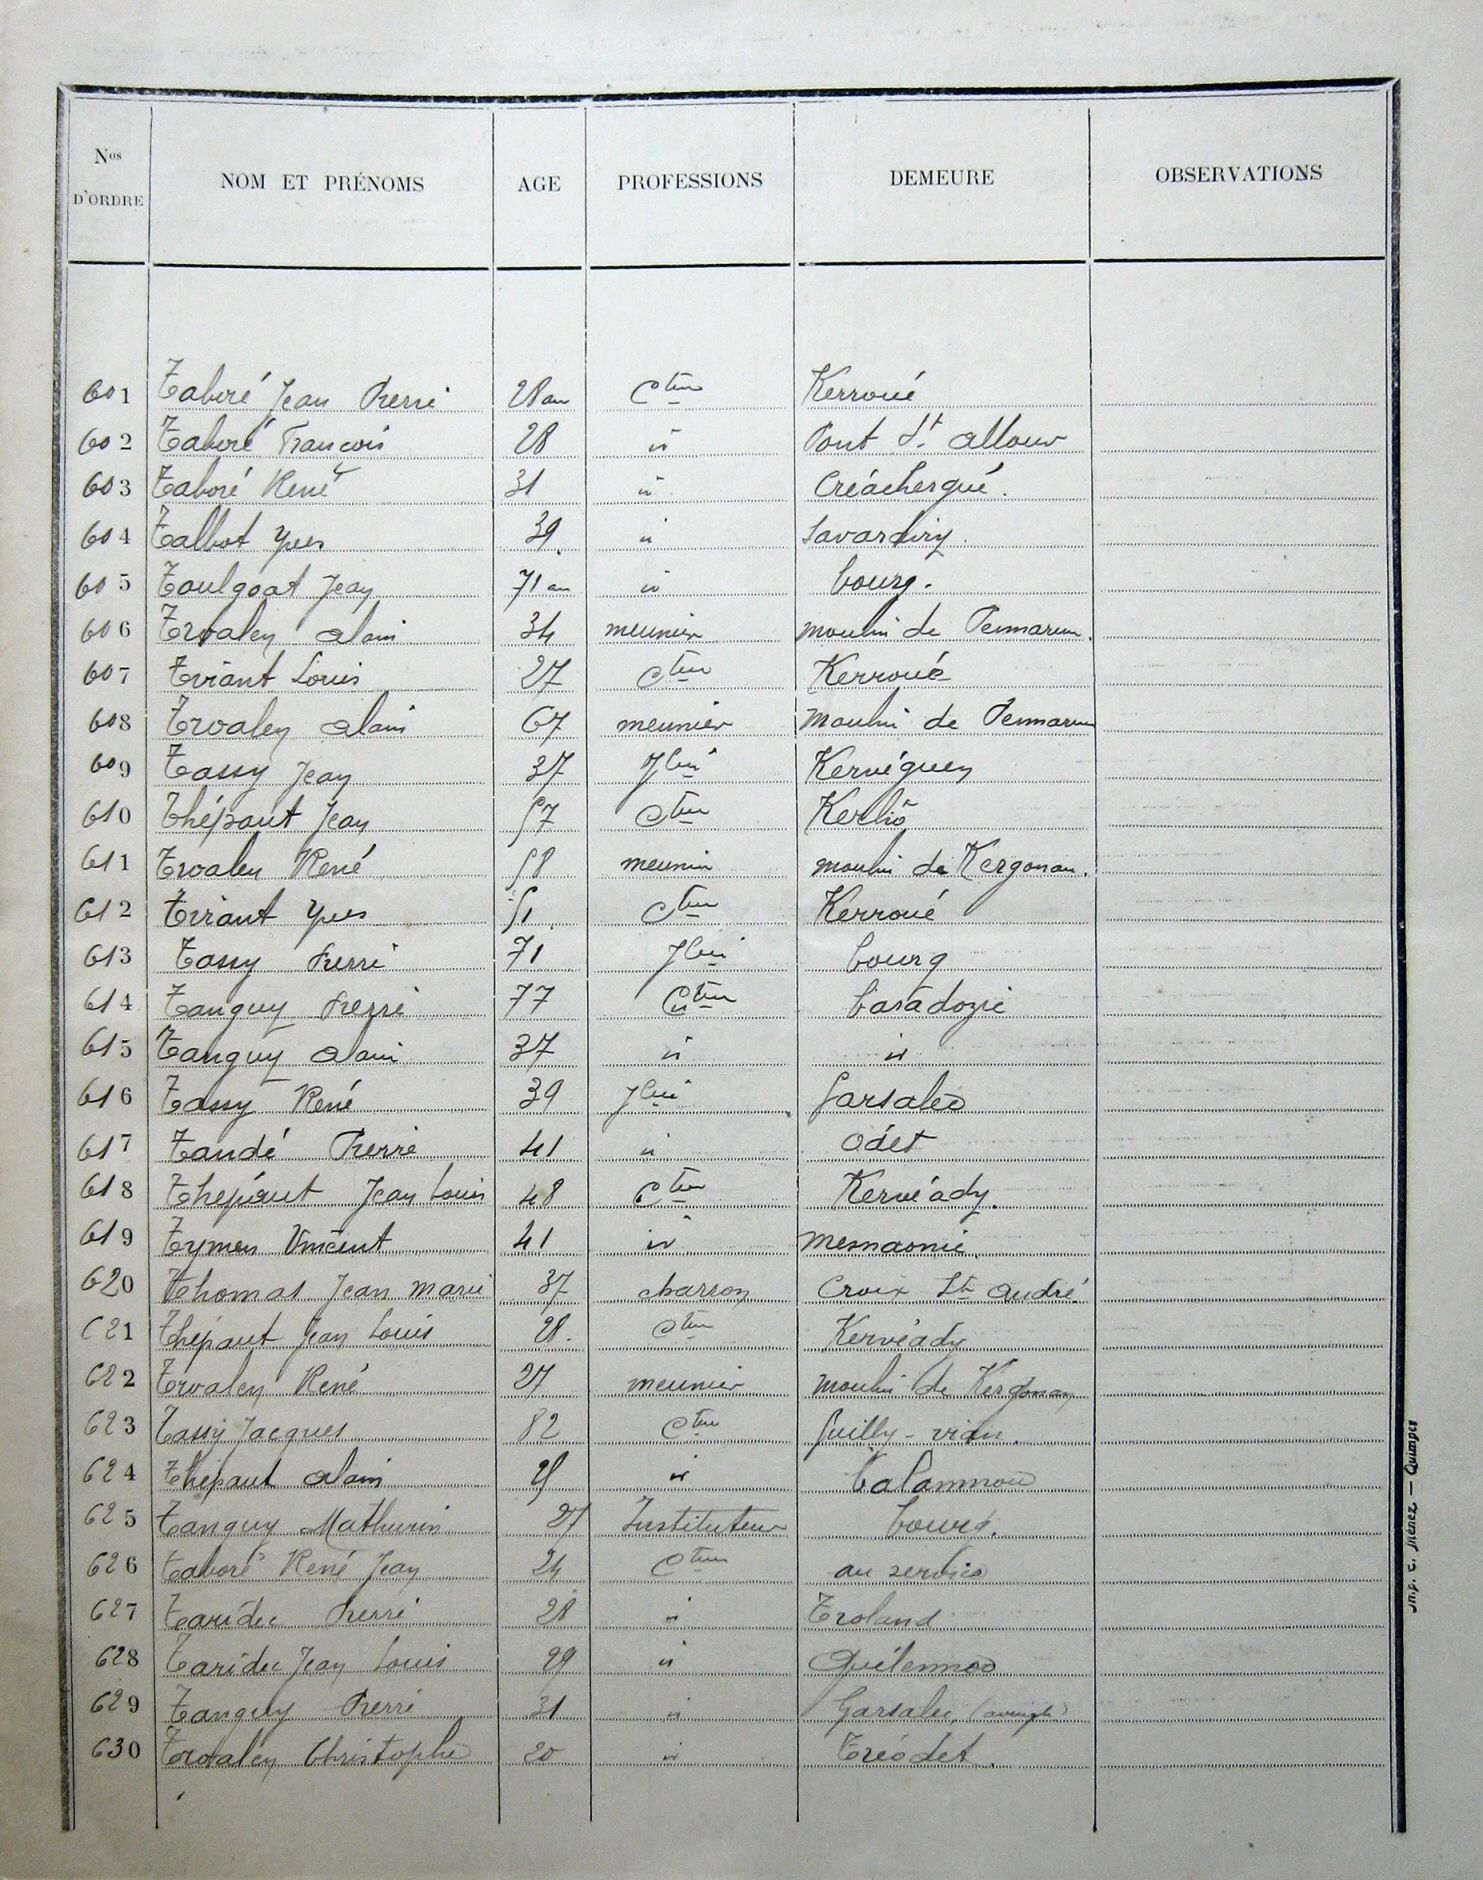 Nos D'ORDRE NOM ET PRÉNOMS AGE PROFESSIONS DEMEURE OBSERVATIONS
601 Taboré Jean Pierre 28 an Cteur Kerroué
602 Taboré François 28 id Pont St Allouw
603 Taboré René 31 id Créachergué.
604 Talbot Yves 39 id Lavardiry
605 Toulgoat Jean 71 an id bourg.
606 Trvalen Alain 34 meunier moulin de Penmarun.
607 Tviant Louis 27 Cteur Kerroué
608 Trvalen Alain 67 meunier Moulin de Penmarun
609 Tassy Jean 37 Jlier Kervéguen
610 Thépaut Jean 57 Cteur Kerlio
611 Trvalen René 58 meunier moulin de Kergonan.
612 Tviant Yves 51 Cteur Kerroué
613 Tassy Pierre 71 Jlier bourg
614 Tanguy Pierre 77 Cteur
615 Tanguy Alain 37 id id
616 Tassy René 39 Jlier Garsalec
617 Tandé Pierre 41 id Odet
618 Thépaut Jean Louis 48 Cteur Kervéady.
619 Tymen Vincent 41 id Mesnaonic
620 Thomas Jean Marie 37 charron Croix St André
621 Thépaut Jean Louis 28. Cteur Kervéady
622 Trvalen René 27 meunier moulin de Kergonan
623 Tassy Jacques 82 Cteur Guilly-vian.
624 Thépaut Alain 25 id
625 Tanguy Mathurin 27 Instituteur bourg.
626 Taboré René Jean 24 Cteur au service
627 Taridec Pierre 28 id Troland
628 Taridec Jean Louis 29 id Quélennec
629 Tanguy Pierre 31 id Garsalec (aveugle)
630 Trvalen Christophe 20 id Tréodet.
Imp. C. Ménez. — Quimper